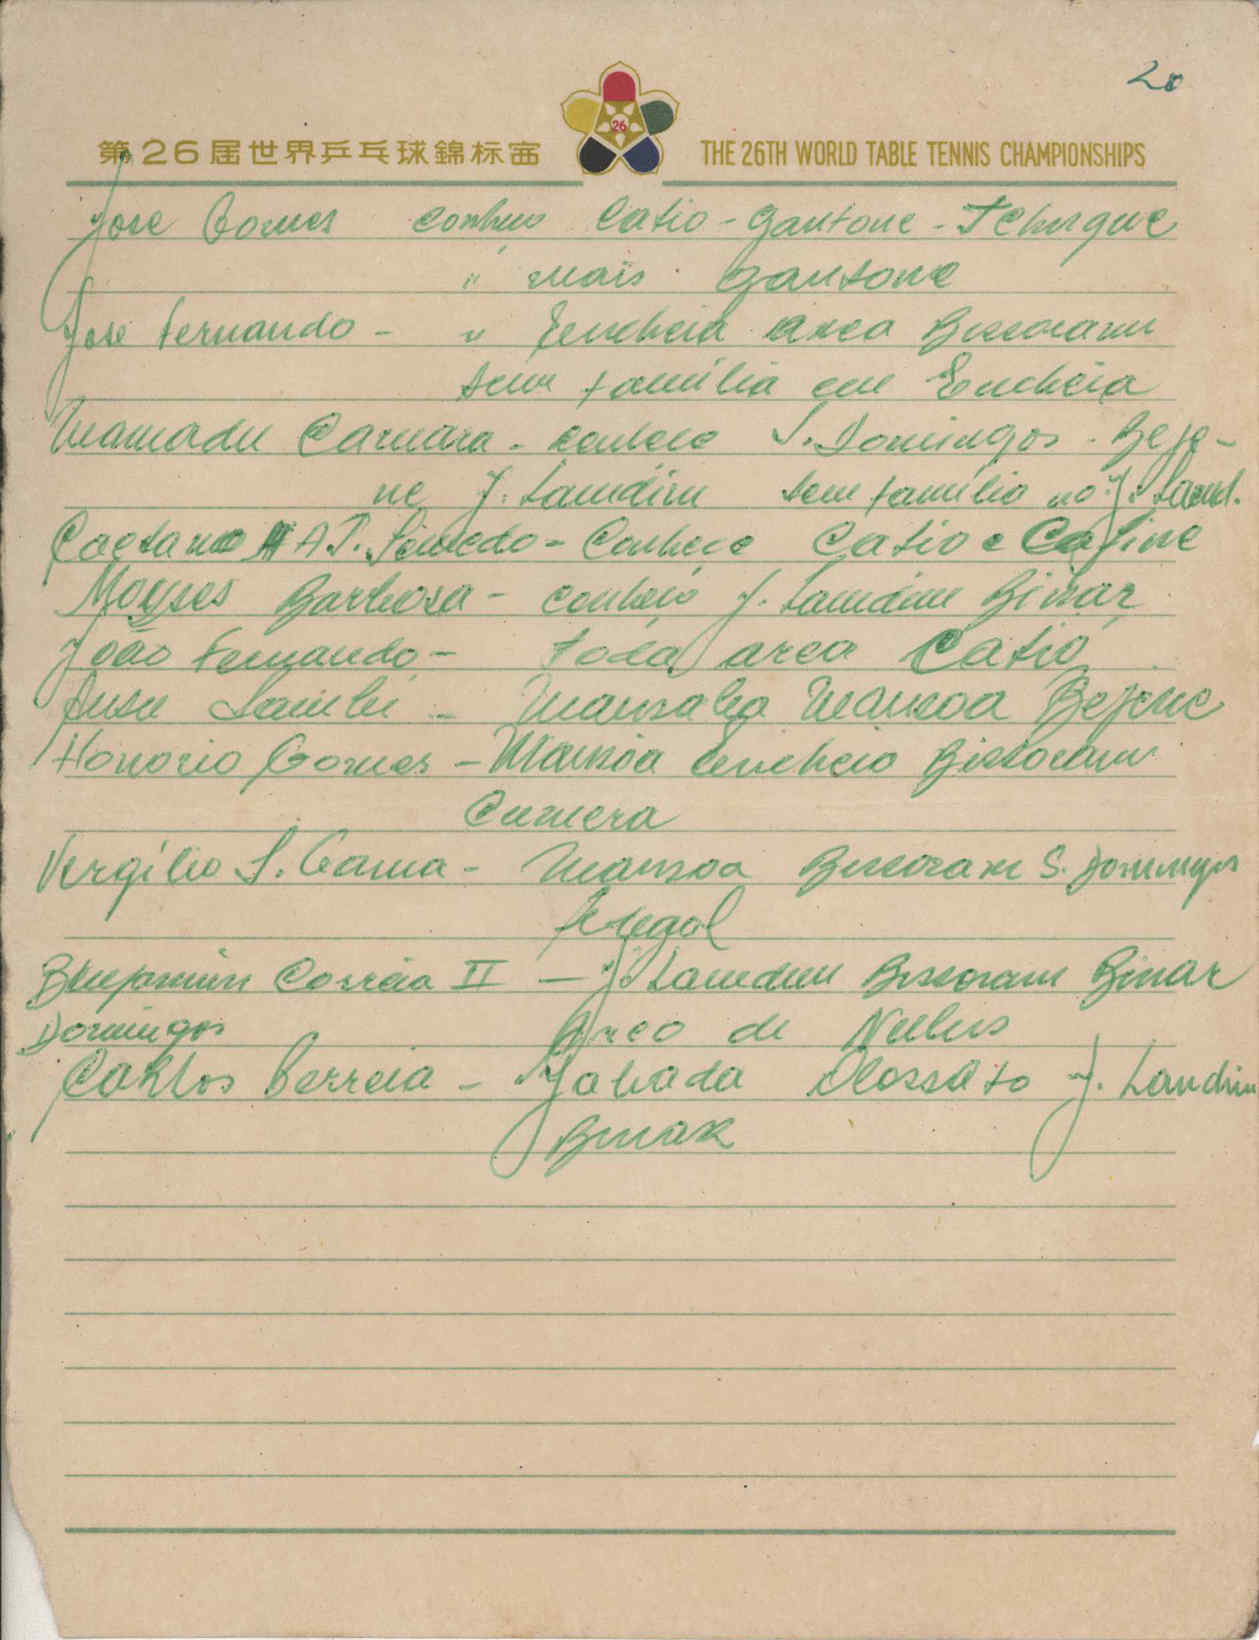 20
第26届世界乒乓球錦标赛
26
THE 26TH WORLD TABLE TENNIS CHAMPIONSHIPS
José Gomes conheço Catio - Gantone - Tchugue
" mais Gantone
José Fernando - " Encheia area Bissoram
tem família em Encheia
Mamadu Camara - conhece S. Domingos - Beje-
ne J. Landim tem família no J. Land.
Caetano A T. Semedo - Conhece Catio e Cafine
Moyses Barbosa - conheço J. Landim Binar
João Fernando - toda area Catió
Ansu Sambu - Mansaba Mansoa Bejene
Honorio Gomes - Mansoa Encheia Bissoram
Cumera
Vergílio S. Gama - Mansoa Bissoram S. Domingos
Senegal
Benjamim Correia II - J. Landim Bissoram Binar
Domingos Area de Nubus
Carlos Correia - Jabada Olossato J. Landim
Binar